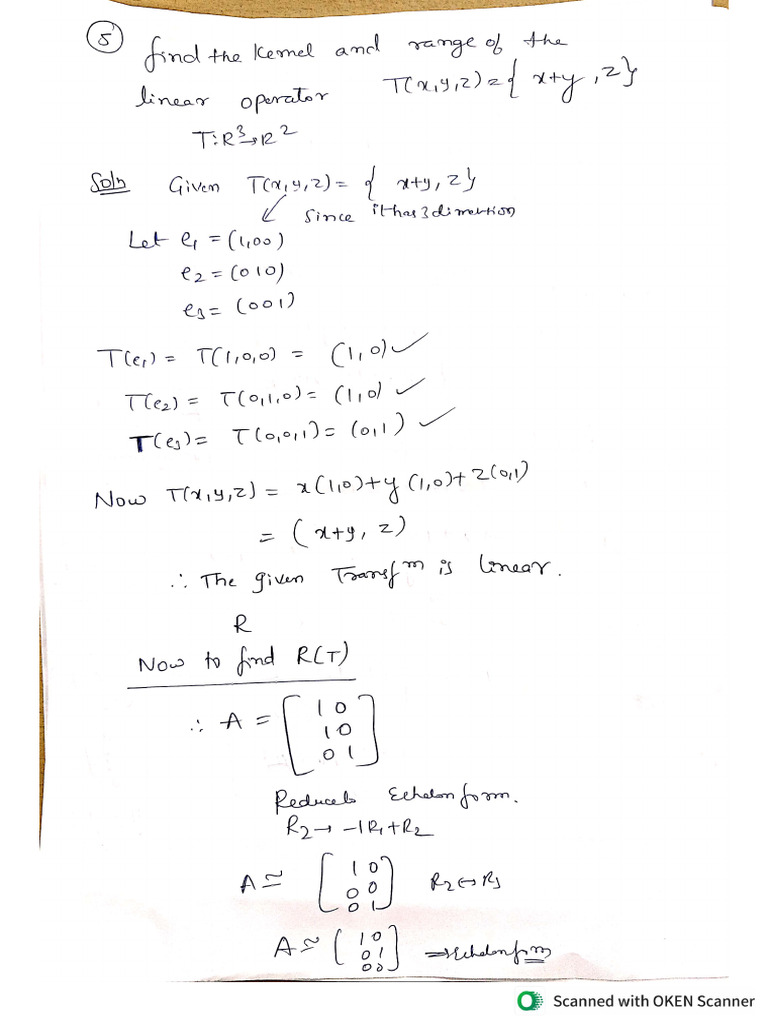 5 find the kernel and range of the
linear operator T(x,y,z)={ x+y,z}
T:R³→R²
Soln Given T(x,y,z)= { x+y, z}
Since it has 3 dimention
Let e₁ = (1,00)
e₂ = (010)
e₃ = (001)
T(e₁) = T(1,0,0) = (1,0) ✓
T(e₂) = T(0,1,0) = (1,0) ✓
T(e₃) = T(0,0,1) = (0,1) ✓
Now T(x,y,z) = x(1,0)+y(1,0)+z(0,1)
= (x+y, z)
∴ The given Transfᵐ is linear.
R
Now to find R(T)
∴ A = [ 1 0
1 0
0 1 ]
Reduceto Echelon form.
R₂ → -1R₁+R₂
A ≃ [ 1 0
0 0
0 1 ] R₂↔R₃
A ≃ [ 1 0
0 1
0 0 ] ⇒ Echelon fm
Scanned with OKEN Scanner